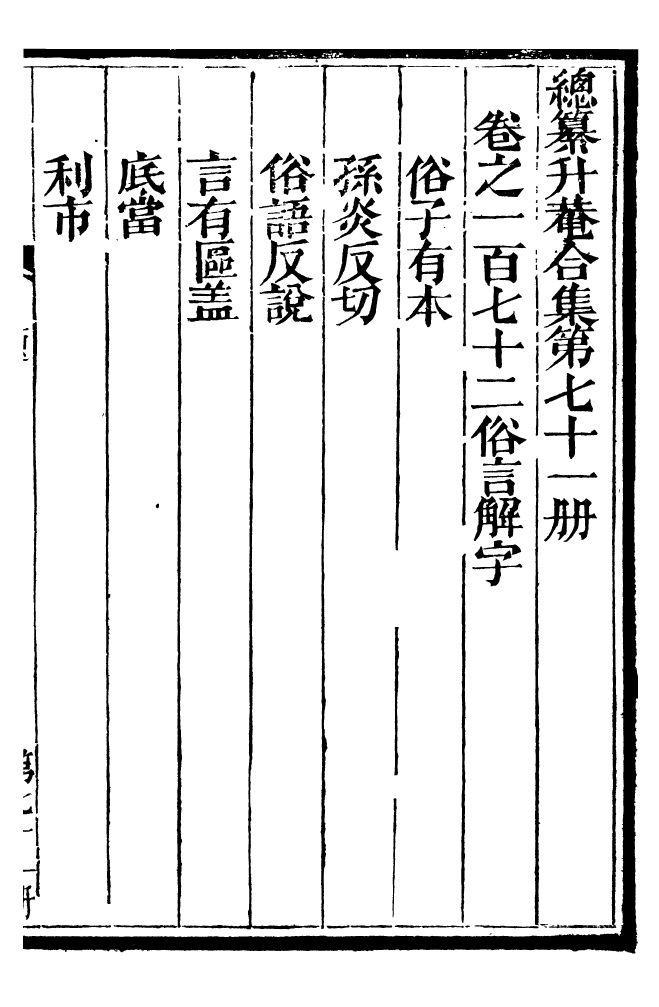 總纂升菴合集第七十一册
卷之一百七十二俗言解字
俗子有本
孫炎反切
俗語反說
言有區盖
底當
利市
第七十一册